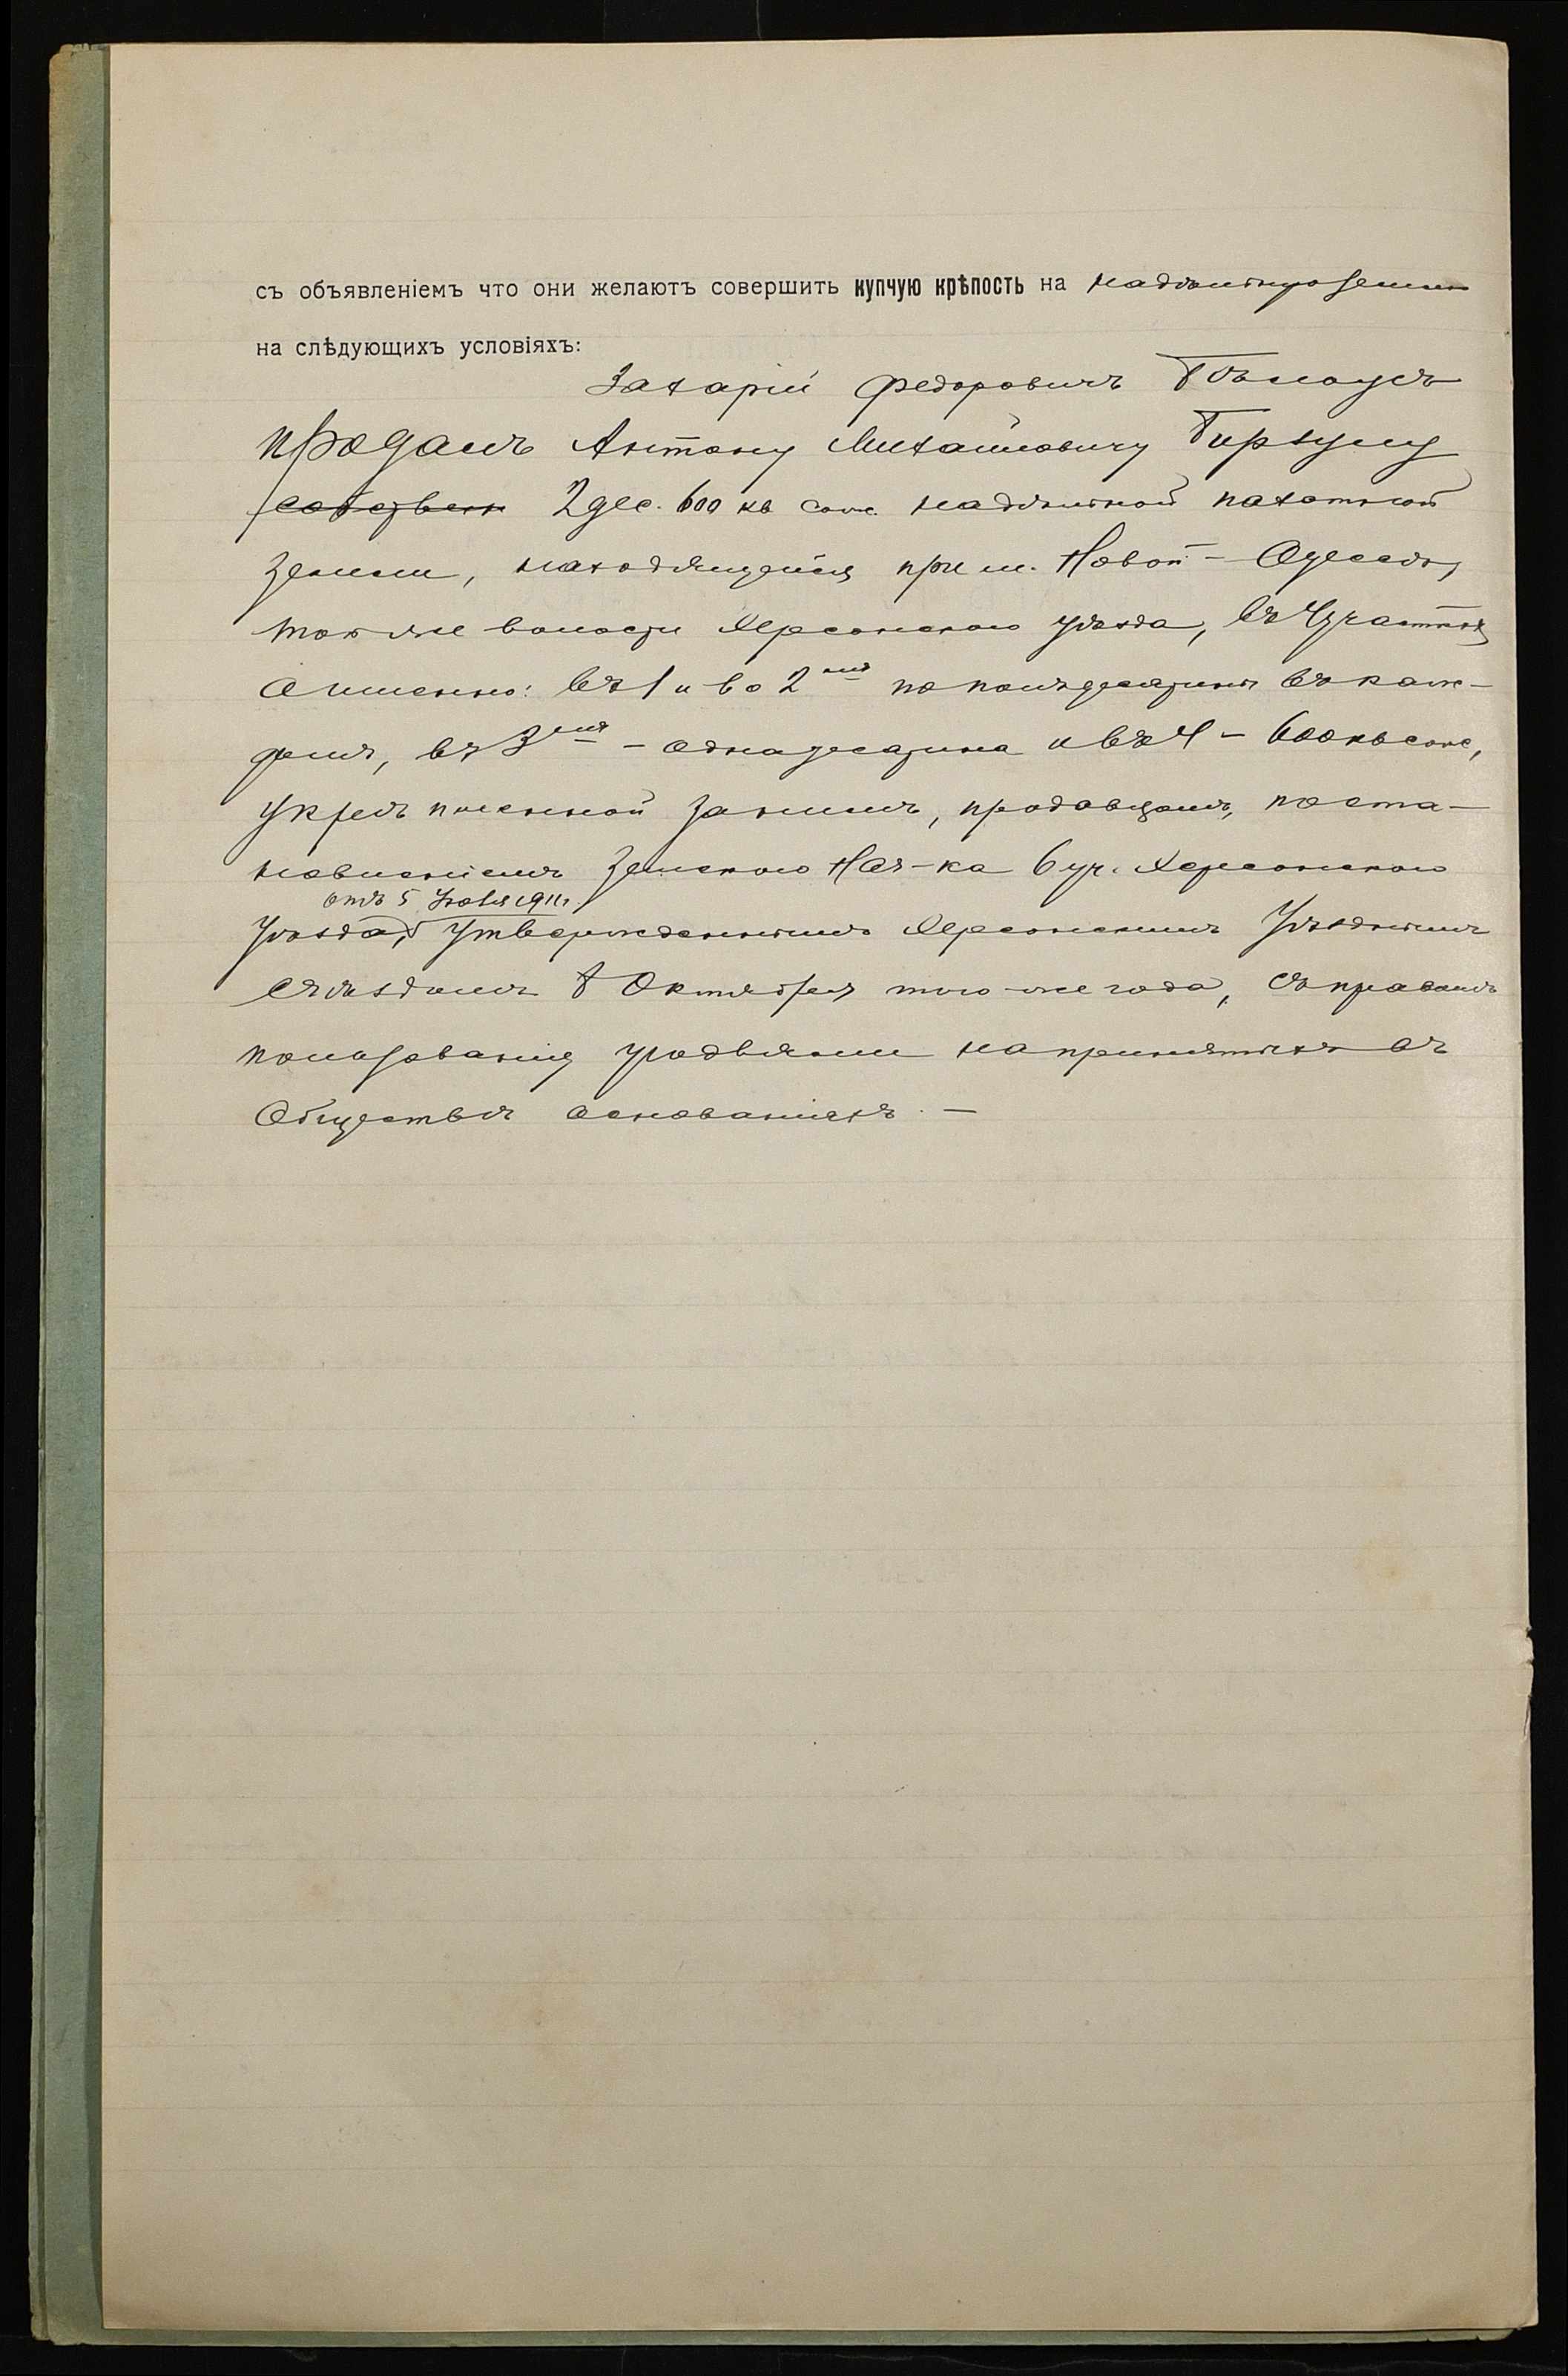 съ объявленіемъ что они желаютъ совершить купчую крѣпость на надѣльную землю
на слѣдующихъ условіяхъ:
Захарій Федоровичъ Бѣлоусъ
продалъ Антону Михайловичу
собствен 2 дес. 600 кв саж. надѣльной пахотной
земли, находящейся при м. Новой-Одессѣ,
той же волости Херсонскаго уѣзда, въ участкѣ
а именно: въ 1 и во 2мъ по полъдесятинѣ въ каж-
домъ, въ 3емъ - одна десятина и въ 4 - 600 кв саж,
укрѣпленной за нимъ, продавцомъ, поста-
новленіемъ Земскаго Нач-ка 6 уч. Херсонскаго
отъ 5 1911 г.
уѣзда, утвержденнымъ Херсонскимъ Уѣзднымъ
съѣздомъ 8 Октября того-же года, съ правомъ
пользованія угодьями на принятыхъ въ
Обществѣ основаніяхъ. -